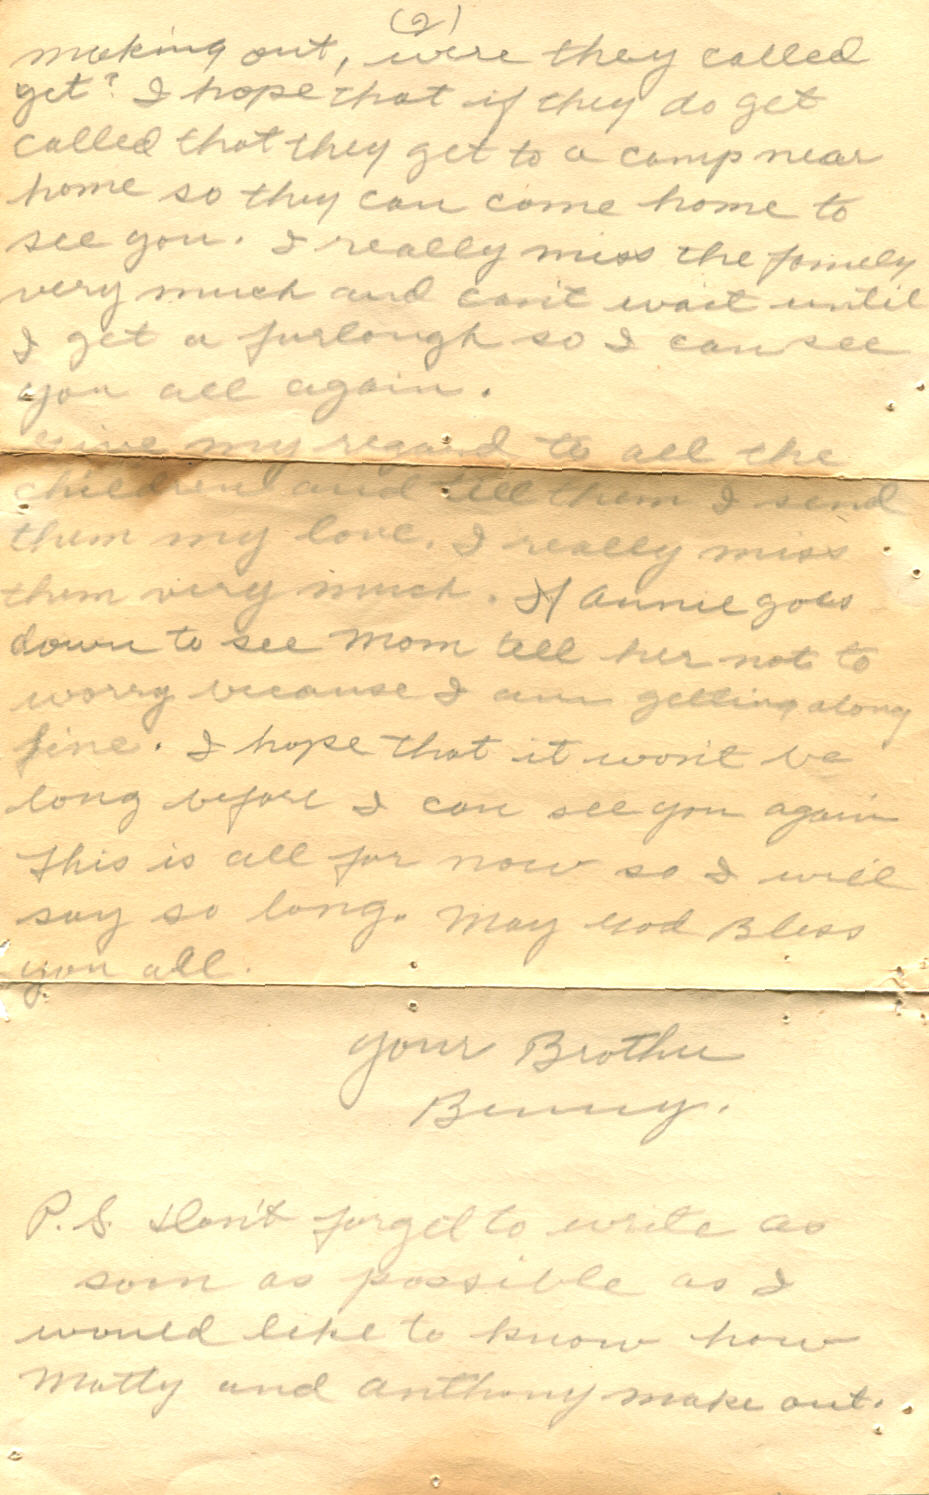 (2)
making out, were they called
yet? I hope that if they do get
called that they get to a camp near
home so they can come home to
see you. I really miss the family
very much and can't wait until
I get a furlough so I can see
you all again.
Give my regard to all the
children and tell them I send
them my love. I really miss
them very much. If Annie goes
down to see Mom tell her not to
worry because I am getting along
fine. I hope that it won't be
long before I can see you again
This is all for now so I will
say so long. May God Bless
you all.
Your Brother
Benny.
P.S. Don't forget to write as
soon as possible as I
would like to know how
Matty and Anthony make out.